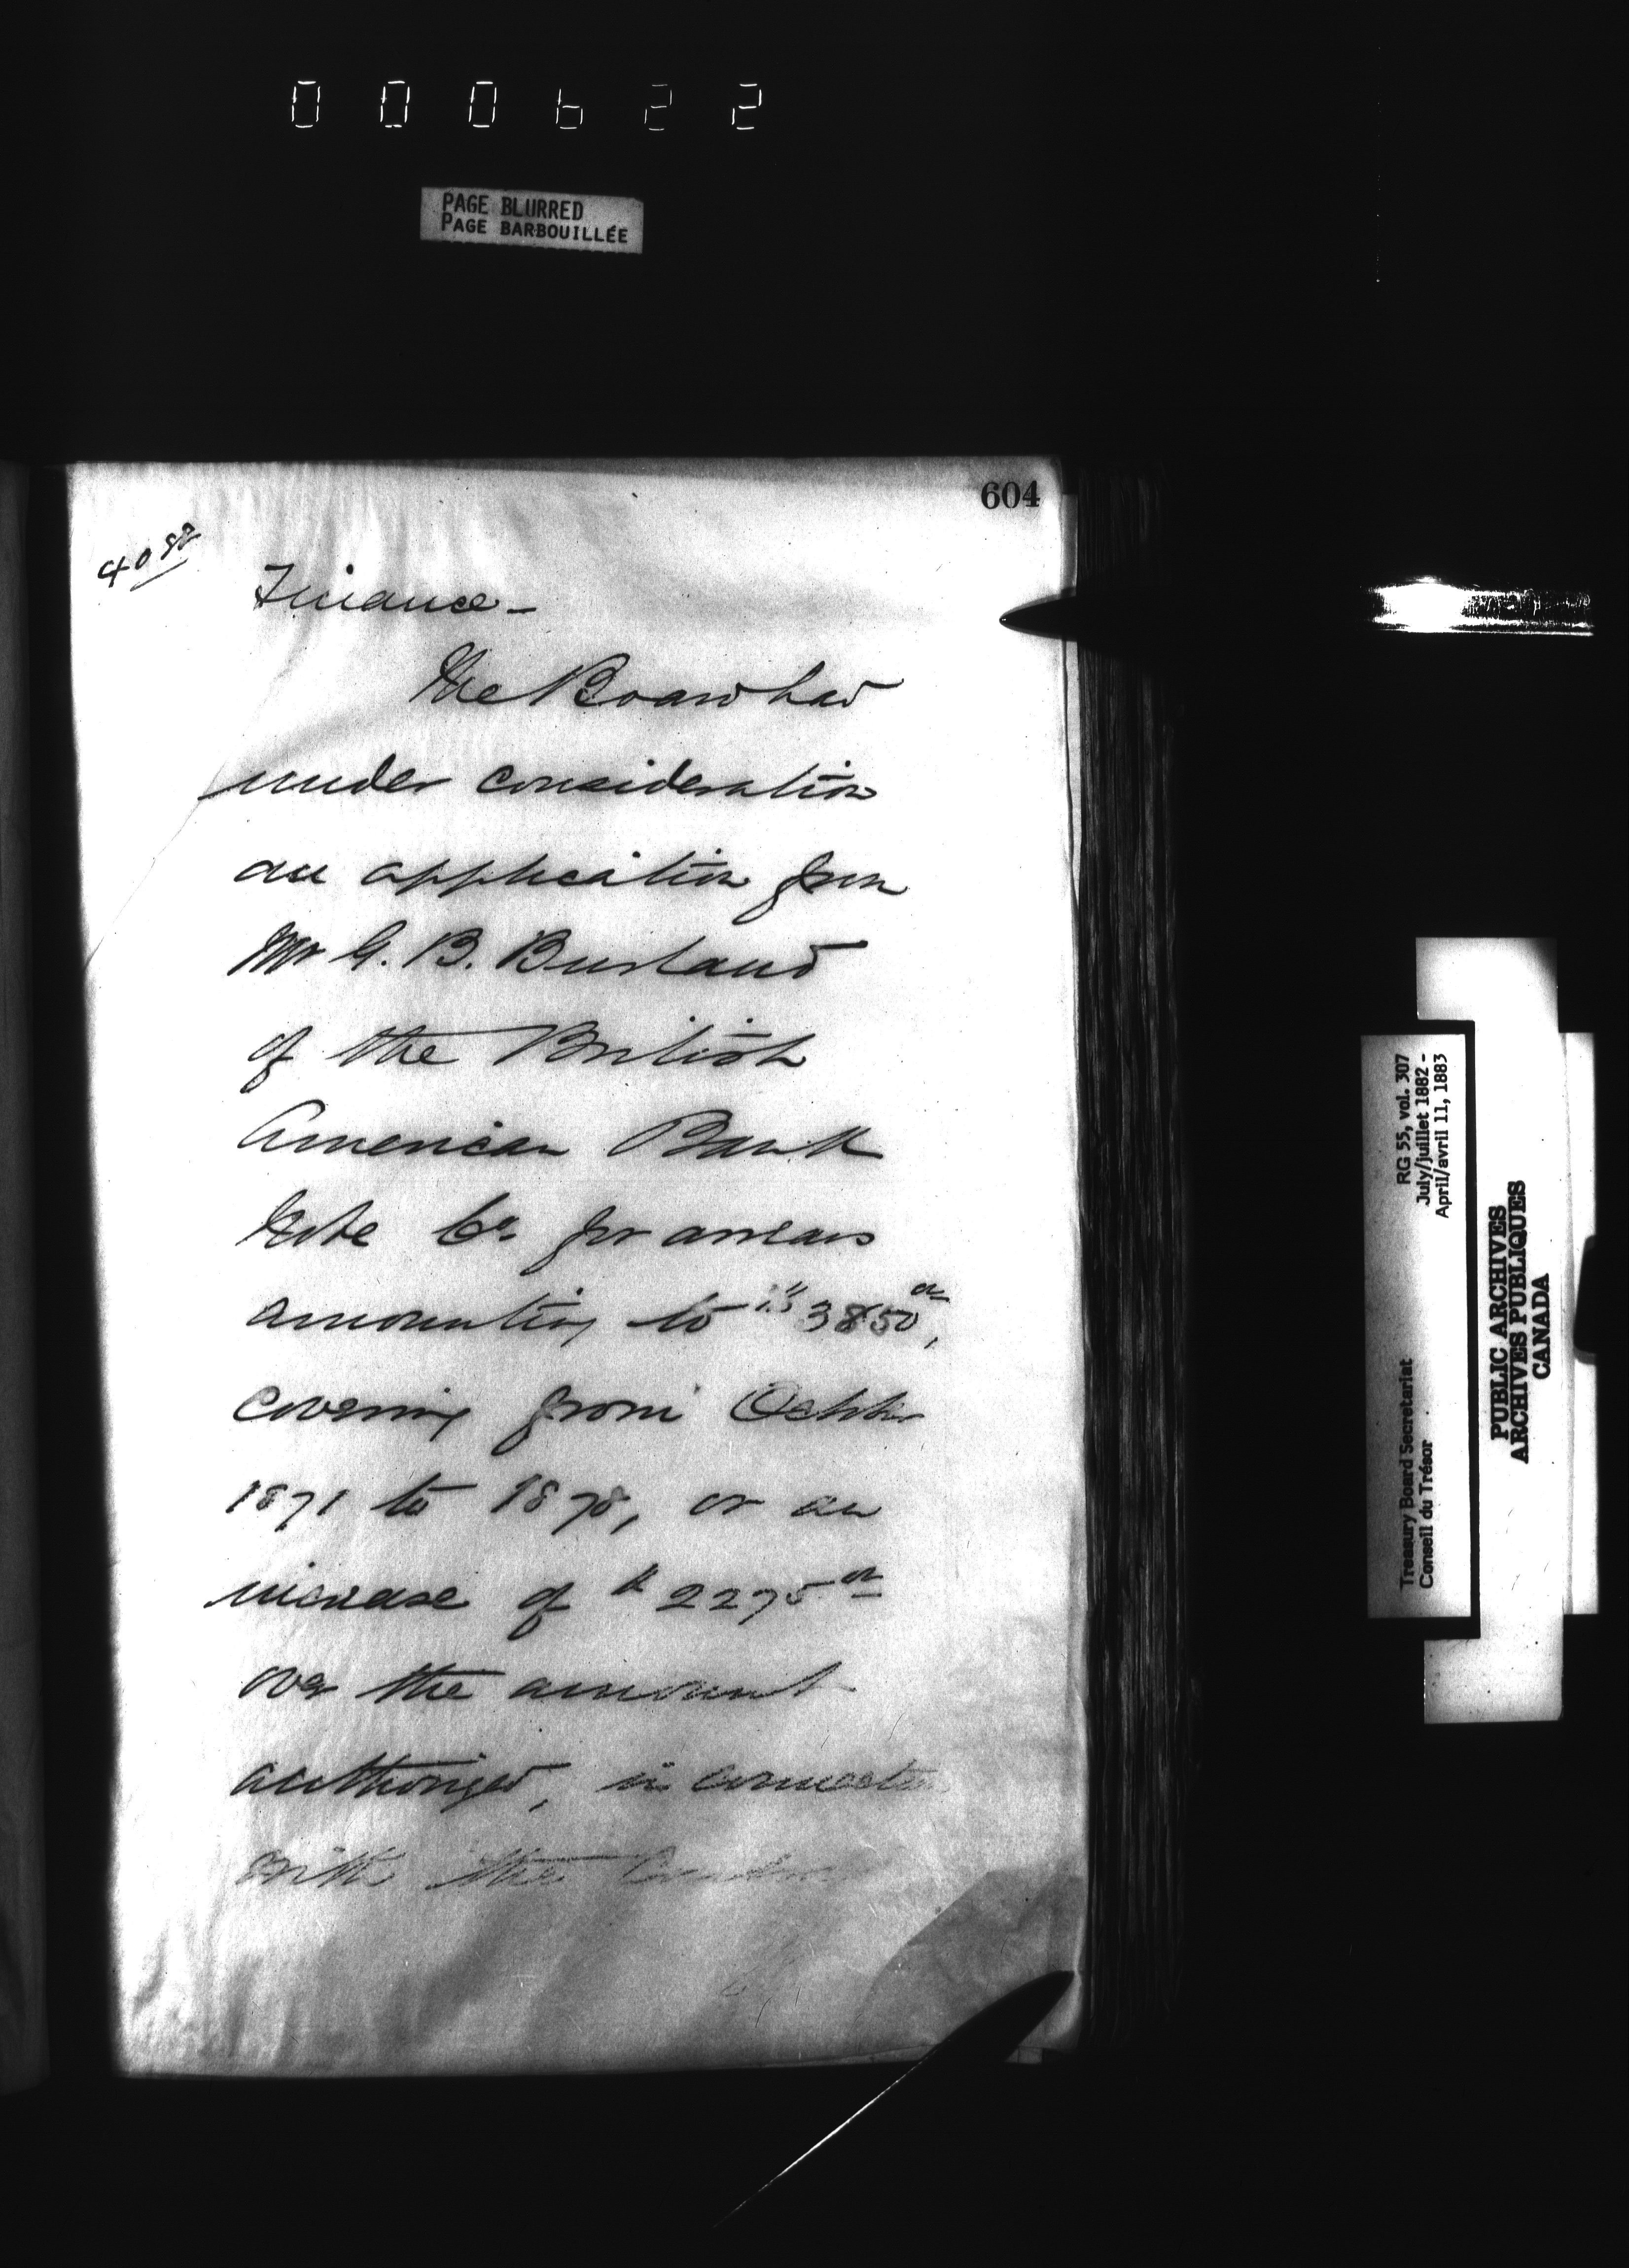 000622
PAGE BLURRED
PAGE BARBOUILLÉE
604
Finance -
The Board had
under consideration
an application from
Mr G. B. Burland
of the British
American Bank
Note Co. for arrears
amounting to $3850 00,
covering from October
1871 to 1878, or an
increase of $2275 00
over the amount
authorized, in connection
with the
RG 55, vol. 307
July/juillet 1882 -
April/avril 11, 1883
Treasury Board Secretariat
Conseil du Trésor
PUBLIC ARCHIVES
ARCHIVES PUBLIQUES
CANADA